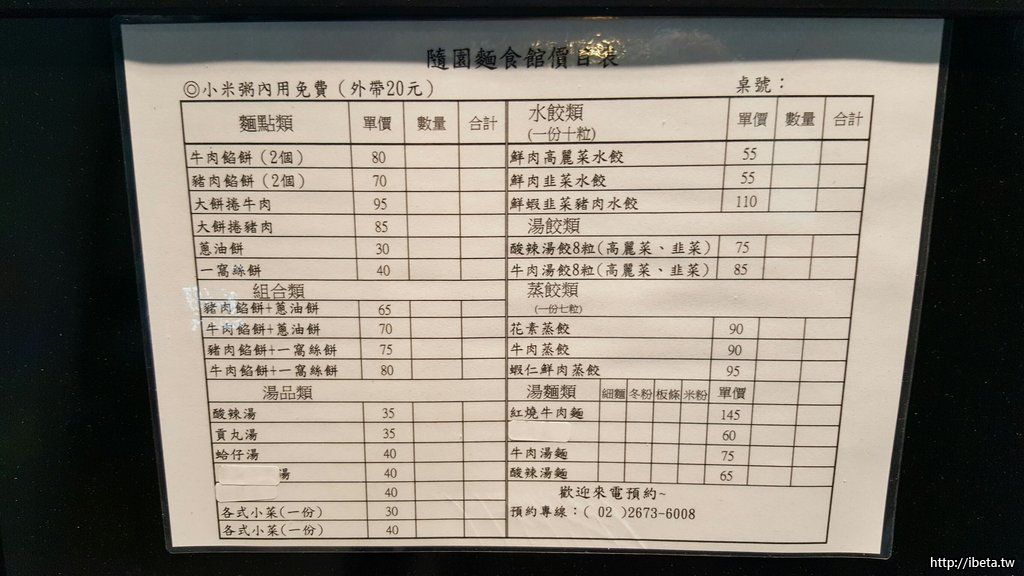 隨園麵食館價目表
◎小米粥內用免費（外帶20元）
桌號：
麵點類 單價 數量 合計
牛肉餡餅（2個） 80
豬肉餡餅（2個） 70
大餅捲牛肉 95
大餅捲豬肉 85
蔥油餅 30
一窩絲餅 40
組合類
豬肉餡餅+蔥油餅 65
牛肉餡餅+蔥油餅 70
豬肉餡餅+一窩絲餅 75
牛肉餡餅+一窩絲餅 80
湯品類
酸辣湯 35
貢丸湯 35
蛤仔湯 40
湯 40
40
各式小菜(一份) 30
各式小菜(一份) 40
水餃類 單價 數量 合計
(一份十粒)
鮮肉高麗菜水餃 55
鮮肉韭菜水餃 55
鮮蝦韭菜豬肉水餃 110
湯餃類
酸辣湯餃8粒(高麗菜、韭菜) 75
牛肉湯餃8粒(高麗菜、韭菜) 85
蒸餃類
(一份七粒)
花素蒸餃 90
牛肉蒸餃 90
蝦仁鮮肉蒸餃 95
湯麵類 細麵 冬粉 板條 米粉 單價
紅燒牛肉麵 145
60
牛肉湯麵 75
酸辣湯麵 65
歡迎來電預約~
預約專線：( 02 )2673-6008
http://ibeta.tw